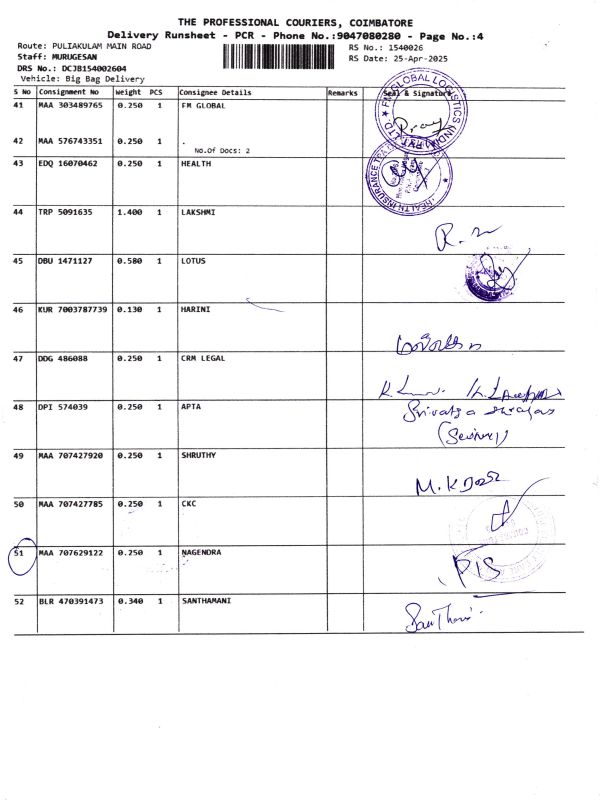 THE PROFESSIONAL COURIERS, COIMBATORE
Delivery Runsheet - PCR - Phone No.:9047080280 - Page No.:4
Route: PULIAKULAM MAIN ROAD
RS No.: 1540026
Staff: MURUGESAN
RS Date: 25-Apr-2025
DRS No.: DCJB154002604
Vehicle: Big Bag Delivery
S No Consignment No Weight PCS Consignee Details Remarks Seal & Signature
41 MAA 303489765 0.250 1 FM GLOBAL
FM GLOBAL LOGISTICS (INDIA) PVT. LTD.
42 MAA 576743351 0.250 1 .
No.Of Docs: 2
43 EDQ 16070462 0.250 1 HEALTH
HEALTH INSURANCE
44 TRP 5091635 1.400 1 LAKSHMI
45 DBU 1471127 0.580 1 LOTUS
46 KUR 7003787739 0.130 1 HARINI
47 DDG 486088 0.250 1 CRM LEGAL
48 DPI 574039 0.250 1 APTA
49 MAA 707427920 0.250 1 SHRUTHY
50 MAA 707427785 0.250 1 CKC
51 MAA 707629122 0.250 1 NAGENDRA
52 BLR 470391473 0.340 1 SANTHAMANI